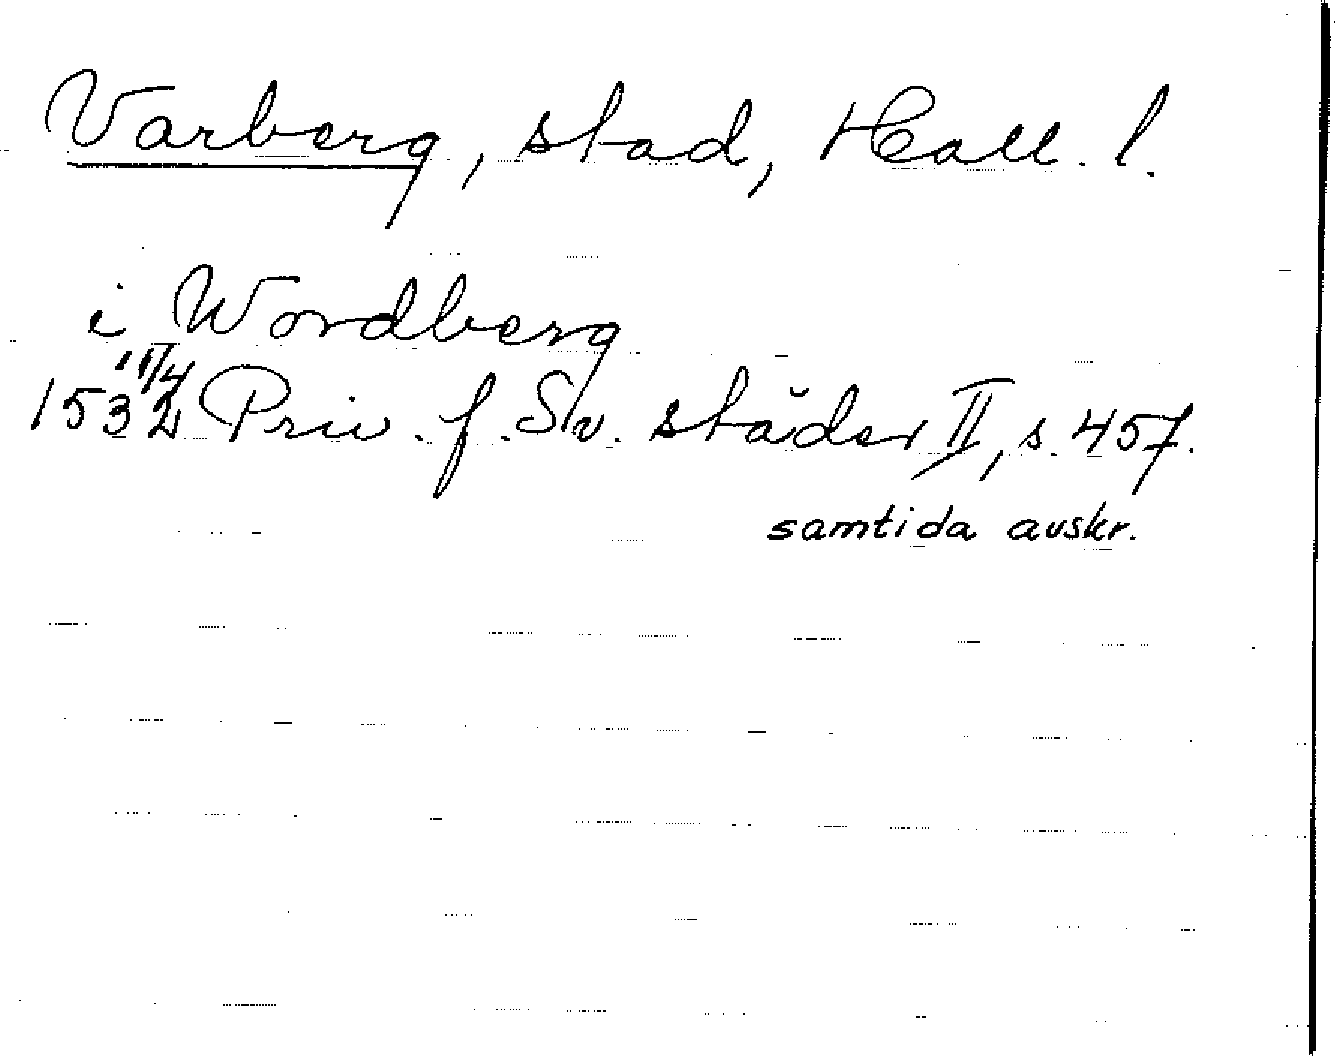 Varberg, stad, Hall. l.
i Wordberg
11/4
1532 Priv. f. Sv. städer II, s. 457.
samtida avskr.